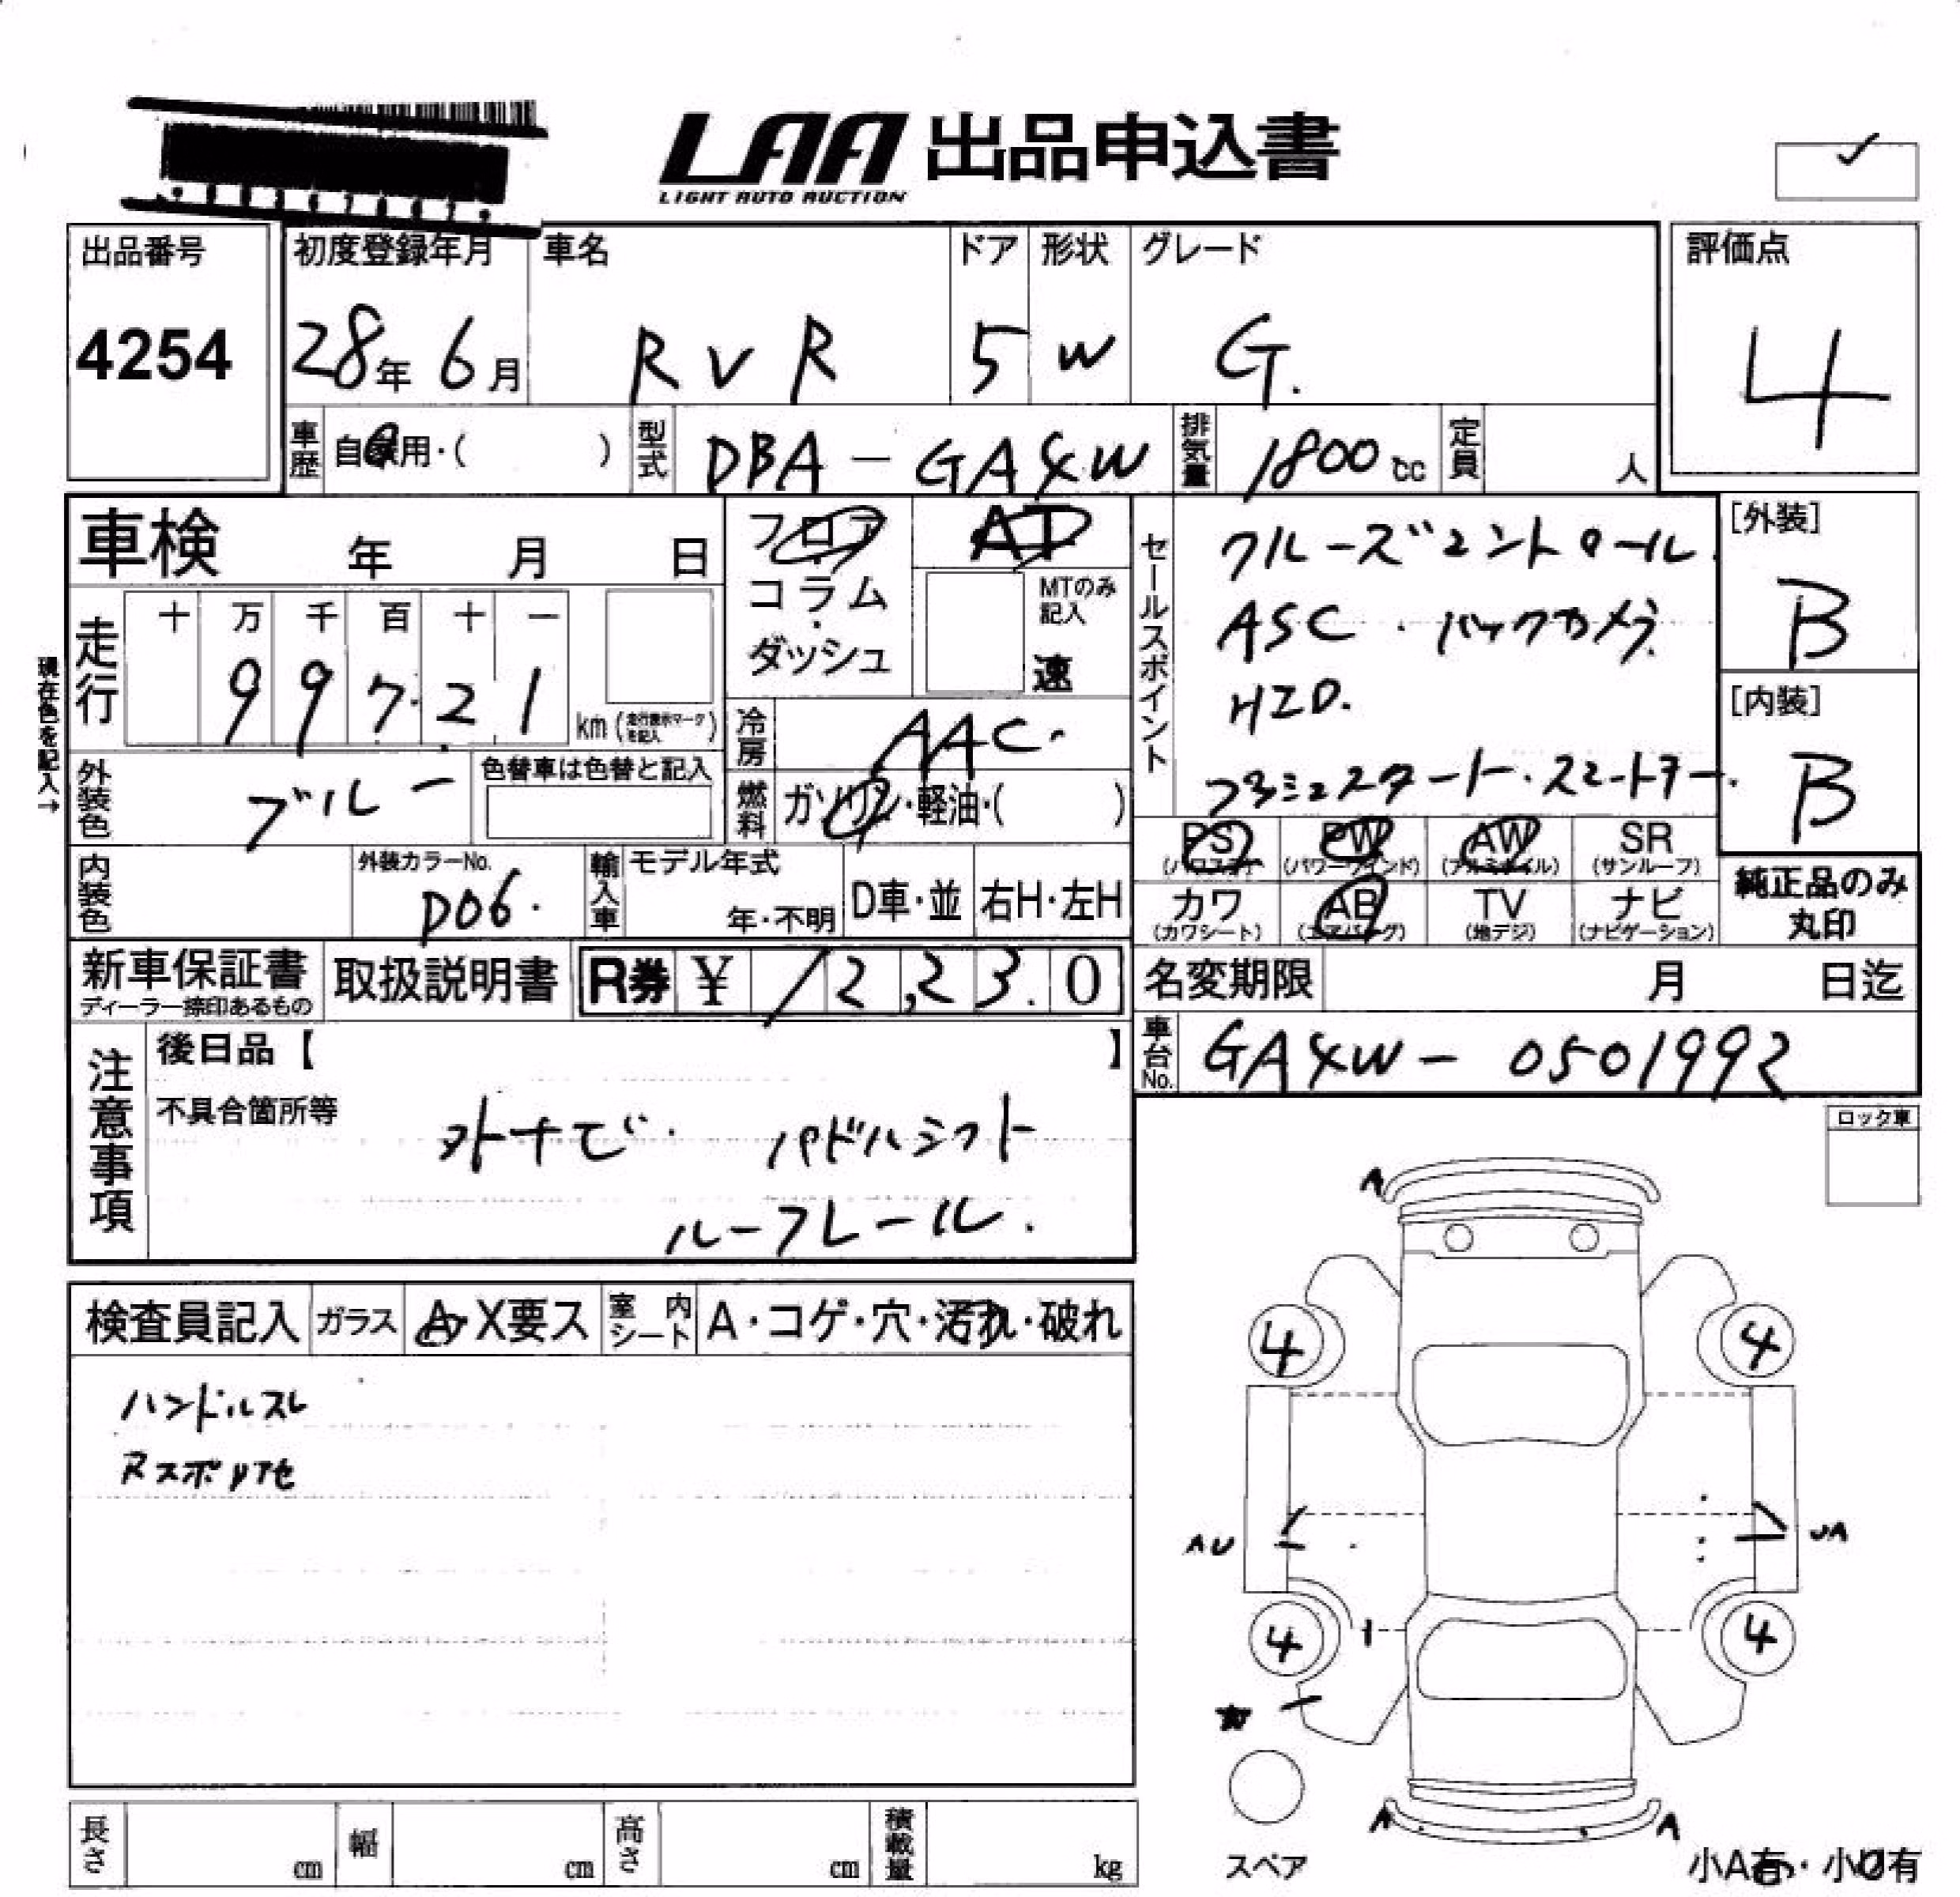 LAA 出品申込書
LIGHT AUTO AUCTION
出品番号 初度登録年月 車名 ドア 形状 グレード 評価点
4254 28年 6月 RVR 5 W G. 4
車歴 自家用・( ) 型式 DBA-GA4W 排気量 1800cc 定員 人
車検 年 月 日 フロア AT
コラム MTのみ記入
ダッシュ 速
セールスポイント クルーズコントロール.
ASC.バックカメラ.
HID.
プッシュスタート.スマートキー.
[外装] B
[内装] B
現在色を記入→
走行 十 万 千 百 十 一
9 9 7 2 1 km (走行表示マークを記入)
冷房 AAC.
外装色 ブルー 色替車は色替と記入
燃料 ガソリン・軽油・( )
PS PW AW SR
(パワステ) (パワーウインド) (アルミホイル) (サンルーフ)
カワ AB TV ナビ
(カワシート) (エアバッグ) (地デジ) (ナビゲーション)
純正品のみ
丸印
内装色 外装カラーNo. D06. 輸入車 モデル年式 年・不明 D車・並 右H・左H
新車保証書 取扱説明書 R券 ¥ 12,230
ディーラー捺印あるもの
名変期限 月 日迄
車台No. GA4W-0501992
注意事項 後日品【 】
不具合箇所等
外ナビ. パドルシフト
ルーフレール.
ロック車
検査員記入 ガラス A・X要ス 室内シート A・コゲ・穴・汚れ・破れ
ハンドルスレ
Rスポリアセ
A
4 4
AU UA
4 4
A A
スペア
小A有・小U有
長さ cm 幅 cm 高さ cm 積載量 kg